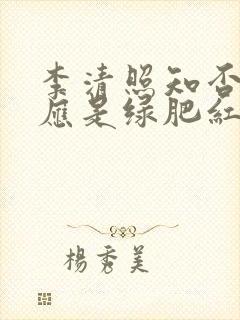 李清照知否
应是绿肥紅
楊秀美